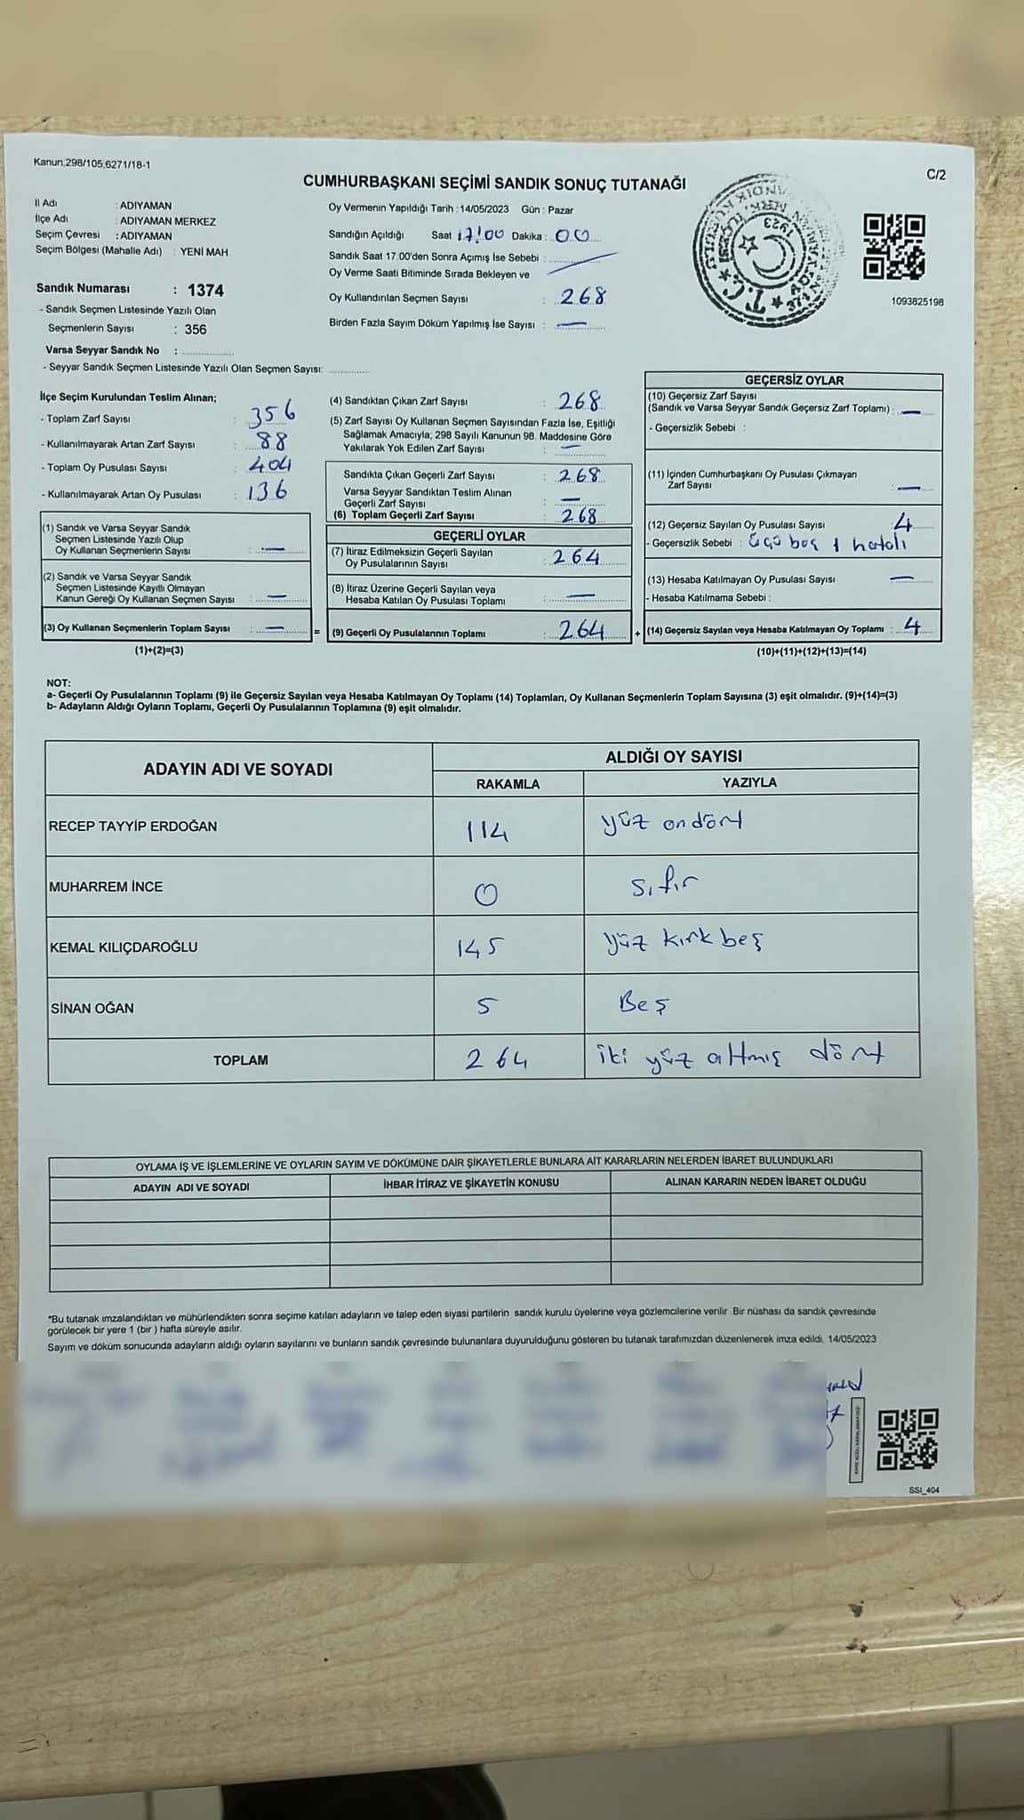 Kanun;298/105,6271/18-1
C/2
CUMHURBAŞKANI SEÇİMİ SANDIK SONUÇ TUTANAĞI
İl Adı : ADIYAMAN
İlçe Adı : ADIYAMAN MERKEZ
Seçim Çevresi : ADIYAMAN
Seçim Bölgesi (Mahalle Adı) : YENİ MAH
Sandık Numarası : 1374
- Sandık Seçmen Listesinde Yazılı Olan
Seçmenlerin Sayısı : 356
Varsa Seyyar Sandık No :
- Seyyar Sandık Seçmen Listesinde Yazılı Olan Seçmen Sayısı:
Oy Vermenin Yapıldığı Tarih : 14/05/2023 Gün : Pazar
Sandığın Açıldığı Saat 17:00 Dakika : 00
Sandık Saat 17.00'den Sonra Açımış İse Sebebi :
Oy Verme Saati Bitiminde Sırada Bekleyen ve
Oy Kullandırılan Seçmen Sayısı : 268
Birden Fazla Sayım Döküm Yapılmış İse Sayısı : —
1093825198
İlçe Seçim Kurulundan Teslim Alınan;
- Toplam Zarf Sayısı : 356
- Kullanılmayarak Artan Zarf Sayısı : 88
- Toplam Oy Pusulası Sayısı : 404
- Kullanılmayarak Artan Oy Pusulası : 136
(1) Sandık ve Varsa Seyyar Sandık
Seçmen Listesinde Yazılı Olup
Oy Kullanan Seçmenlerin Sayısı : —
(2) Sandık ve Varsa Seyyar Sandık
Seçmen Listesinde Kayıtlı Olmayan
Kanun Gereği Oy Kullanan Seçmen Sayısı : —
(3) Oy Kullanan Seçmenlerin Toplam Sayısı : —
(1)+(2)=(3)
(4) Sandıktan Çıkan Zarf Sayısı : 268
(5) Zarf Sayısı Oy Kullanan Seçmen Sayısından Fazla İse, Eşitliği
Sağlamak Amacıyla; 298 Sayılı Kanunun 98. Maddesine Göre
Yakılarak Yok Edilen Zarf Sayısı : —
Sandıkta Çıkan Geçerli Zarf Sayısı : 268
Varsa Seyyar Sandıktan Teslim Alınan
Geçerli Zarf Sayısı : —
(6) Toplam Geçerli Zarf Sayısı : 268
GEÇERLİ OYLAR
(7) İtiraz Edilmeksizin Geçerli Sayılan
Oy Pusulalarının Sayısı : 264
(8) İtiraz Üzerine Geçerli Sayılan veya
Hesaba Katılan Oy Pusulası Toplamı : —
= (9) Geçerli Oy Pusulalarının Toplamı : 264
GEÇERSİZ OYLAR
(10) Geçersiz Zarf Sayısı
(Sandık ve Varsa Seyyar Sandık Geçersiz Zarf Toplamı) : —
- Geçersizlik Sebebi :
(11) İçinden Cumhurbaşkanı Oy Pusulası Çıkmayan
Zarf Sayısı : —
(12) Geçersiz Sayılan Oy Pusulası Sayısı : 4
- Geçersizlik Sebebi : üçü boş 1 hatalı
(13) Hesaba Katılmayan Oy Pusulası Sayısı : —
- Hesaba Katılmama Sebebi :
+ (14) Geçersiz Sayılan veya Hesaba Katılmayan Oy Toplamı : 4
(10)+(11)+(12)+(13)=(14)
NOT:
a- Geçerli Oy Pusulalarının Toplamı (9) ile Geçersiz Sayılan veya Hesaba Katılmayan Oy Toplamı (14) Toplamları, Oy Kullanan Seçmenlerin Toplam Sayısına (3) eşit olmalıdır. (9)+(14)=(3)
b- Adayların Aldığı Oyların Toplamı, Geçerli Oy Pusulalarının Toplamına (9) eşit olmalıdır.
ADAYIN ADI VE SOYADI
ALDIĞI OY SAYISI
RAKAMLA YAZIYLA
RECEP TAYYİP ERDOĞAN 114 yüz ondört
MUHARREM İNCE 0 sıfır
KEMAL KILIÇDAROĞLU 145 yüz kırk beş
SİNAN OĞAN 5 Beş
TOPLAM 264 iki yüz altmış dört
OYLAMA İŞ VE İŞLEMLERİNE VE OYLARIN SAYIM VE DÖKÜMÜNE DAİR ŞİKAYETLERLE BUNLARA AİT KARARLARIN NELERDEN İBARET BULUNDUKLARI
ADAYIN ADI VE SOYADI İHBAR İTİRAZ VE ŞİKAYETİN KONUSU ALINAN KARARIN NEDEN İBARET OLDUĞU
*Bu tutanak imzalandıktan ve mühürlendikten sonra seçime katılan adayların ve talep eden siyasi partilerin sandık kurulu üyelerine veya gözlemcilerine verilir. Bir nüshası da sandık çevresinde
görülecek bir yere 1 (bir ) hafta süreyle asılır.
Sayım ve döküm sonucunda adayların aldığı oyların sayılarını ve bunların sandık çevresinde bulunanlara duyurulduğunu gösteren bu tutanak tarafımızdan düzenlenerek imza edildi. 14/05/2023
SSI_404